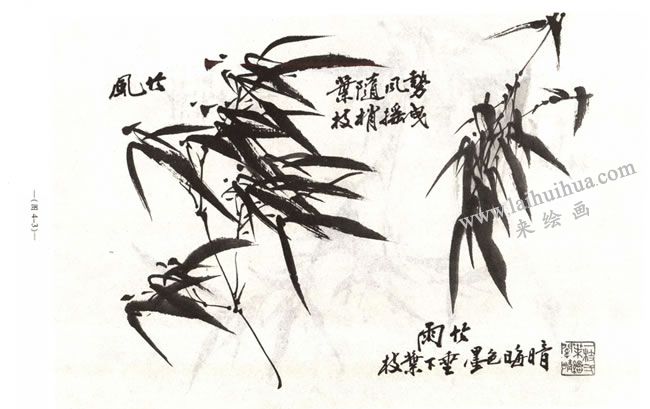 風竹
葉隨风勢
枝梢摇曳
雨竹
枝葉下垂墨色晦暗
—(图 4-3)—
www.laihuihua.com
来绘画